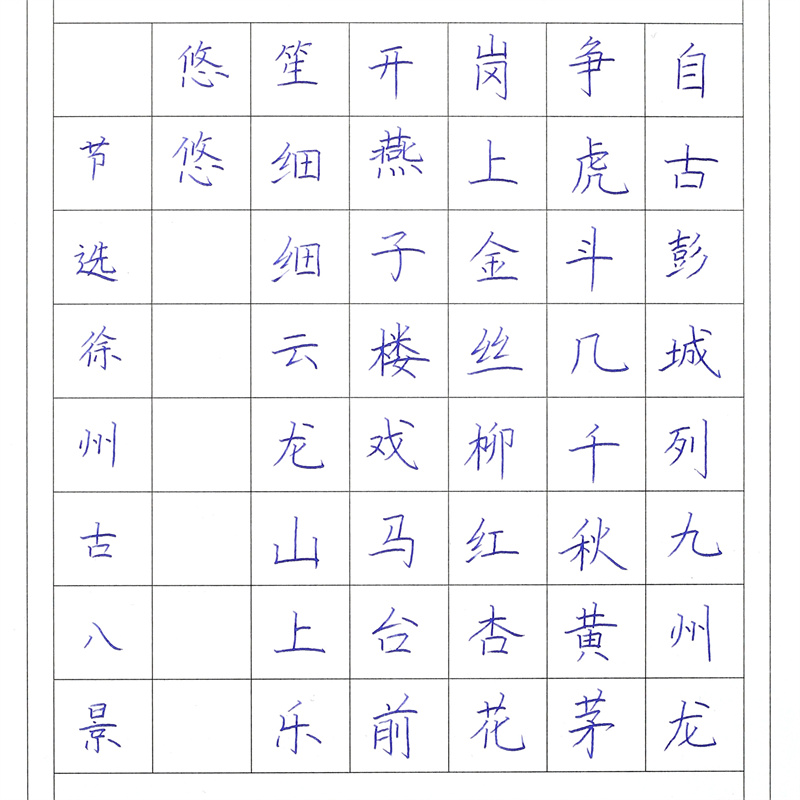 自古彭城列九州龙
争虎斗几千秋黄茅
岗上金丝柳红杏花
开燕子楼戏马台前
笙细细云龙山上乐
悠悠
节选徐州古八景